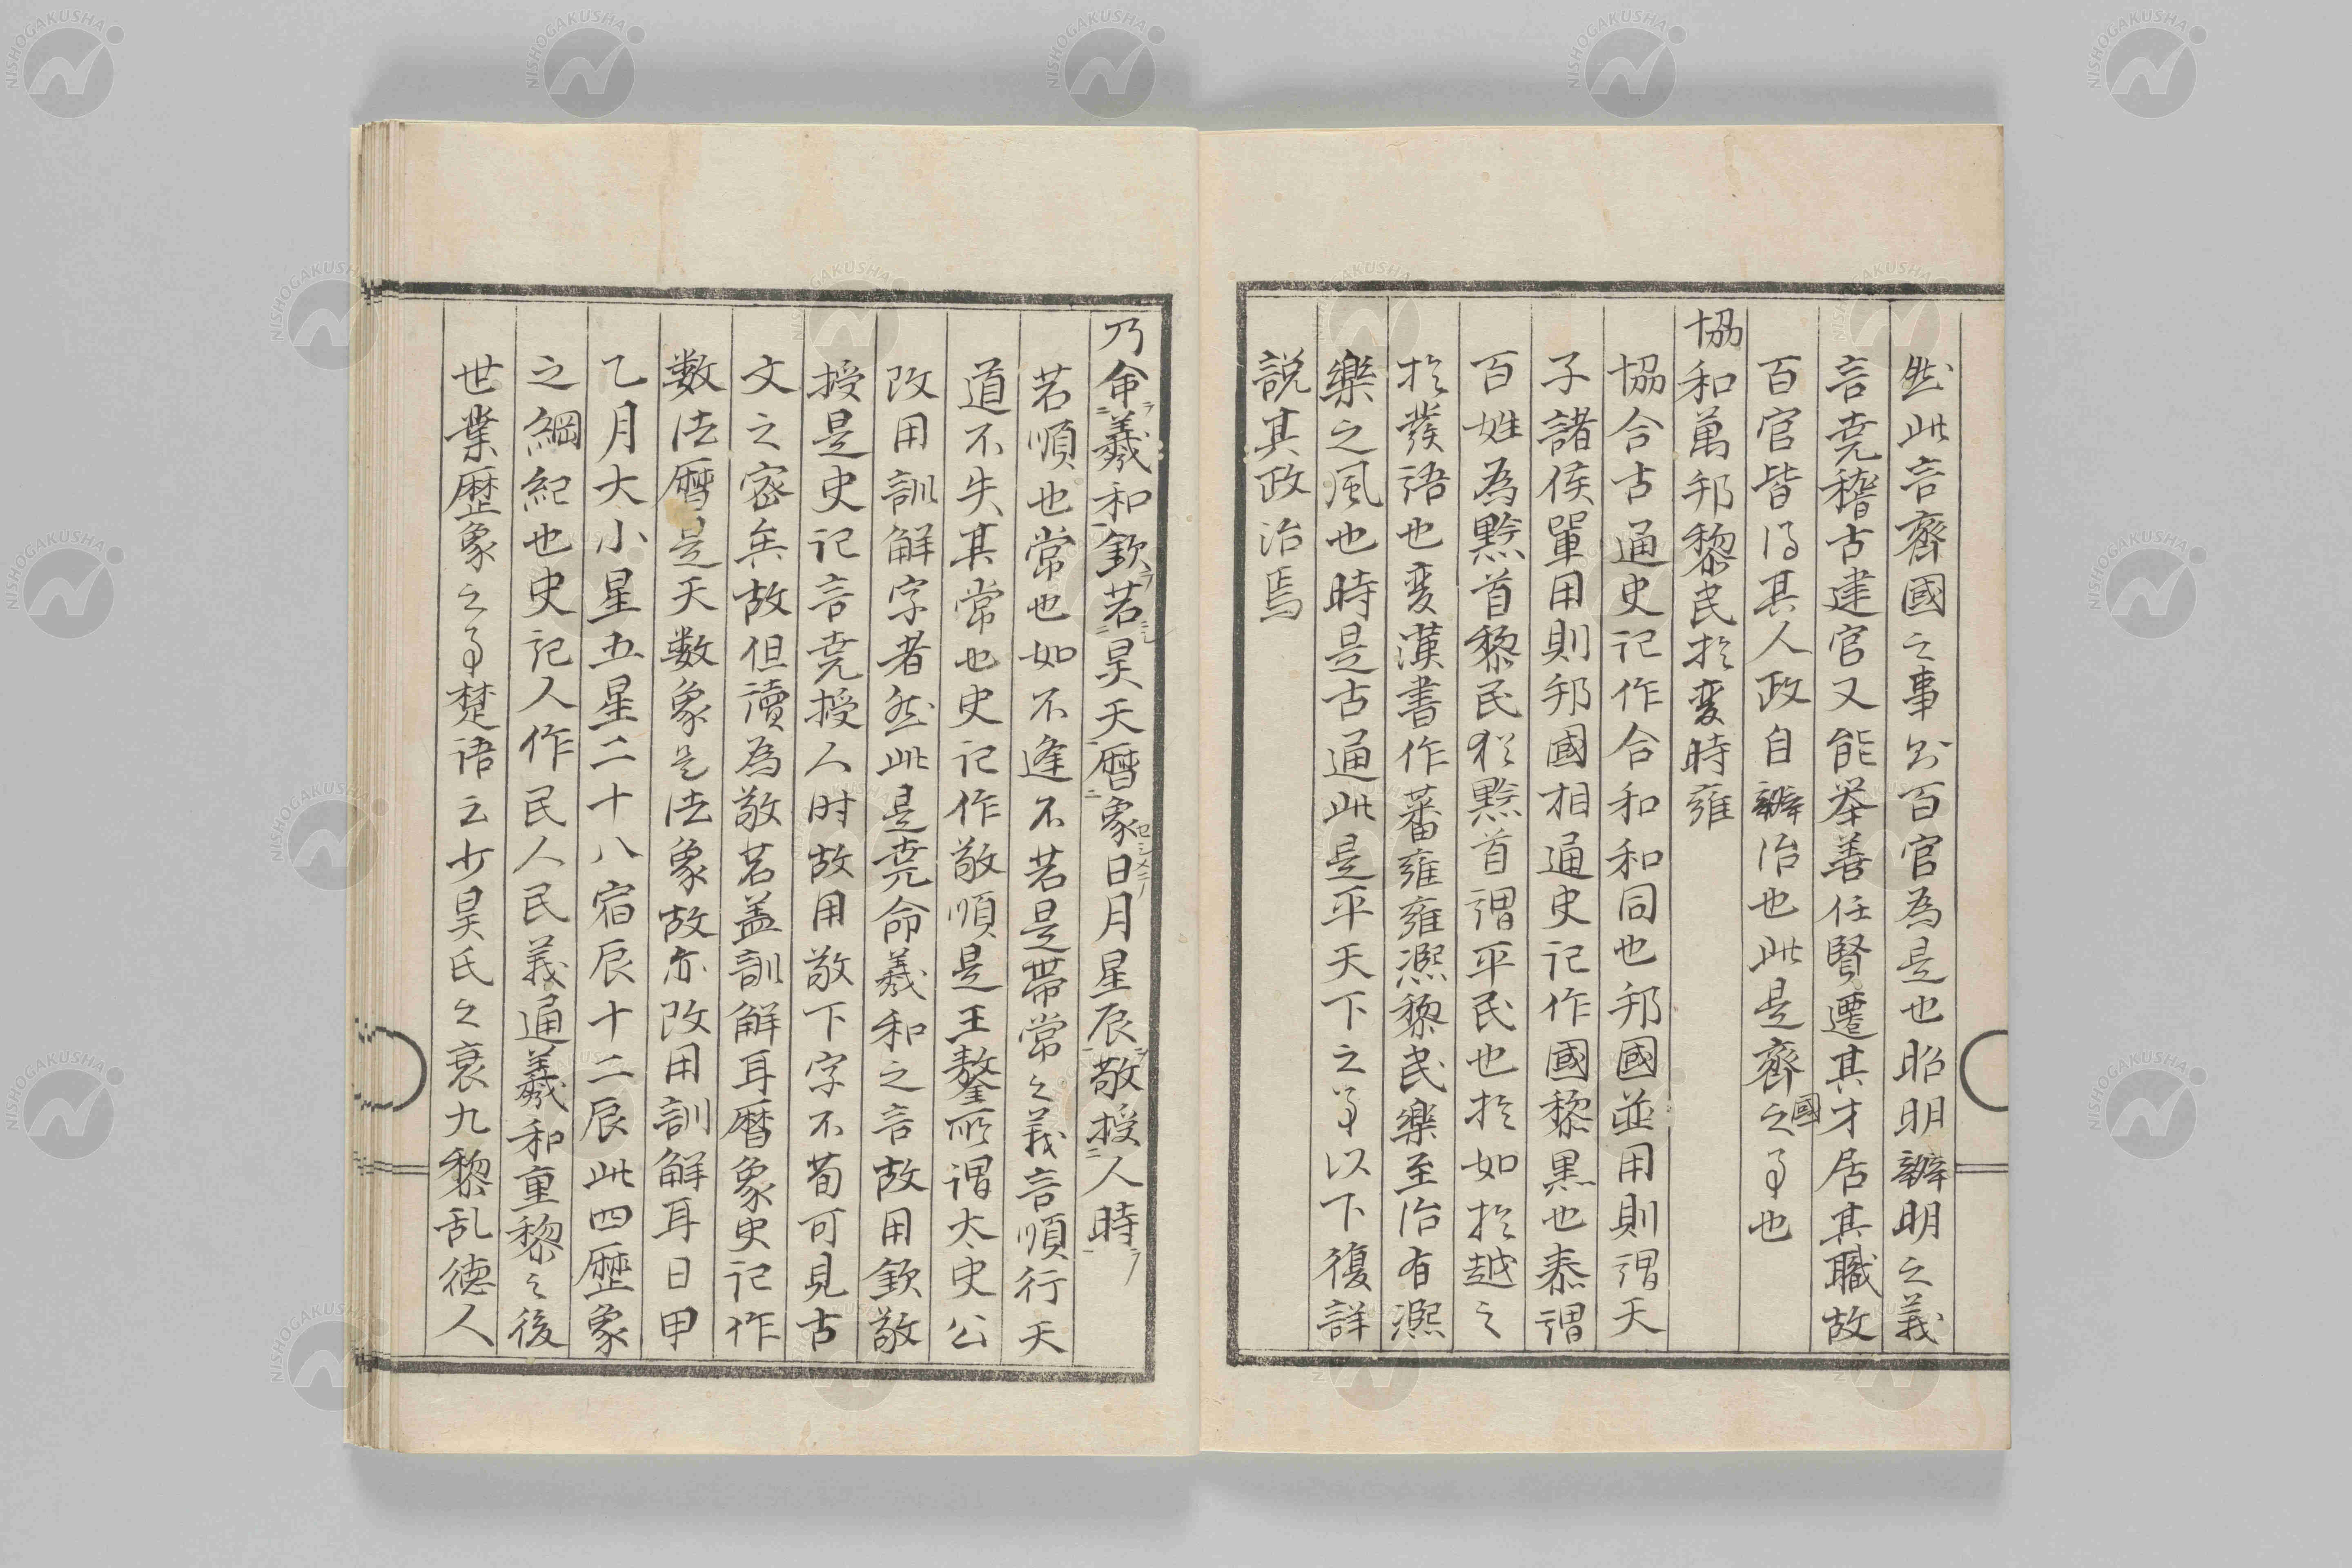 然此言齊國之事則百官為是也昭明辨明之義
言堯稽古建官又能举善任賢遷其才居其職故
百官皆得其人政自辨治也此是齊國之事也
協和萬邦黎民於変時雍
協合古通史記作合和和同也邦國並用則謂天
子諸侯單用則邦國相通史記作國黎黒也泰謂
百姓為黔首黎民猶黔首謂平民也於如於越之
於發語也変漢書作蕃雍雍凞黎民樂至治有凞
樂之風也時是古通此是平天下之事以下復詳
說其政治焉
乃命羲和欽若昊天曆象日月星辰敬授人時
若順也常也如不逢不若是帶常之義言順行天
道不失其常也史記作敬順是王鏊所謂太史公
改用訓解字者然此是堯命羲和之言故用欽敬
授是史記言堯授人时故用敬下字不苟可見古
文之密矣故但讀為敬若盖訓解耳曆象史記作
数法曆是天数象是法象故亦改用訓解耳日甲
乙月大小星五星二十八宿辰十二辰此四歴象
之綱紀也史記人作民人民義通羲和重黎之後
世業歴象之事楚語云少昊氏之衰九黎乱德人
NISHOGAKUSHA